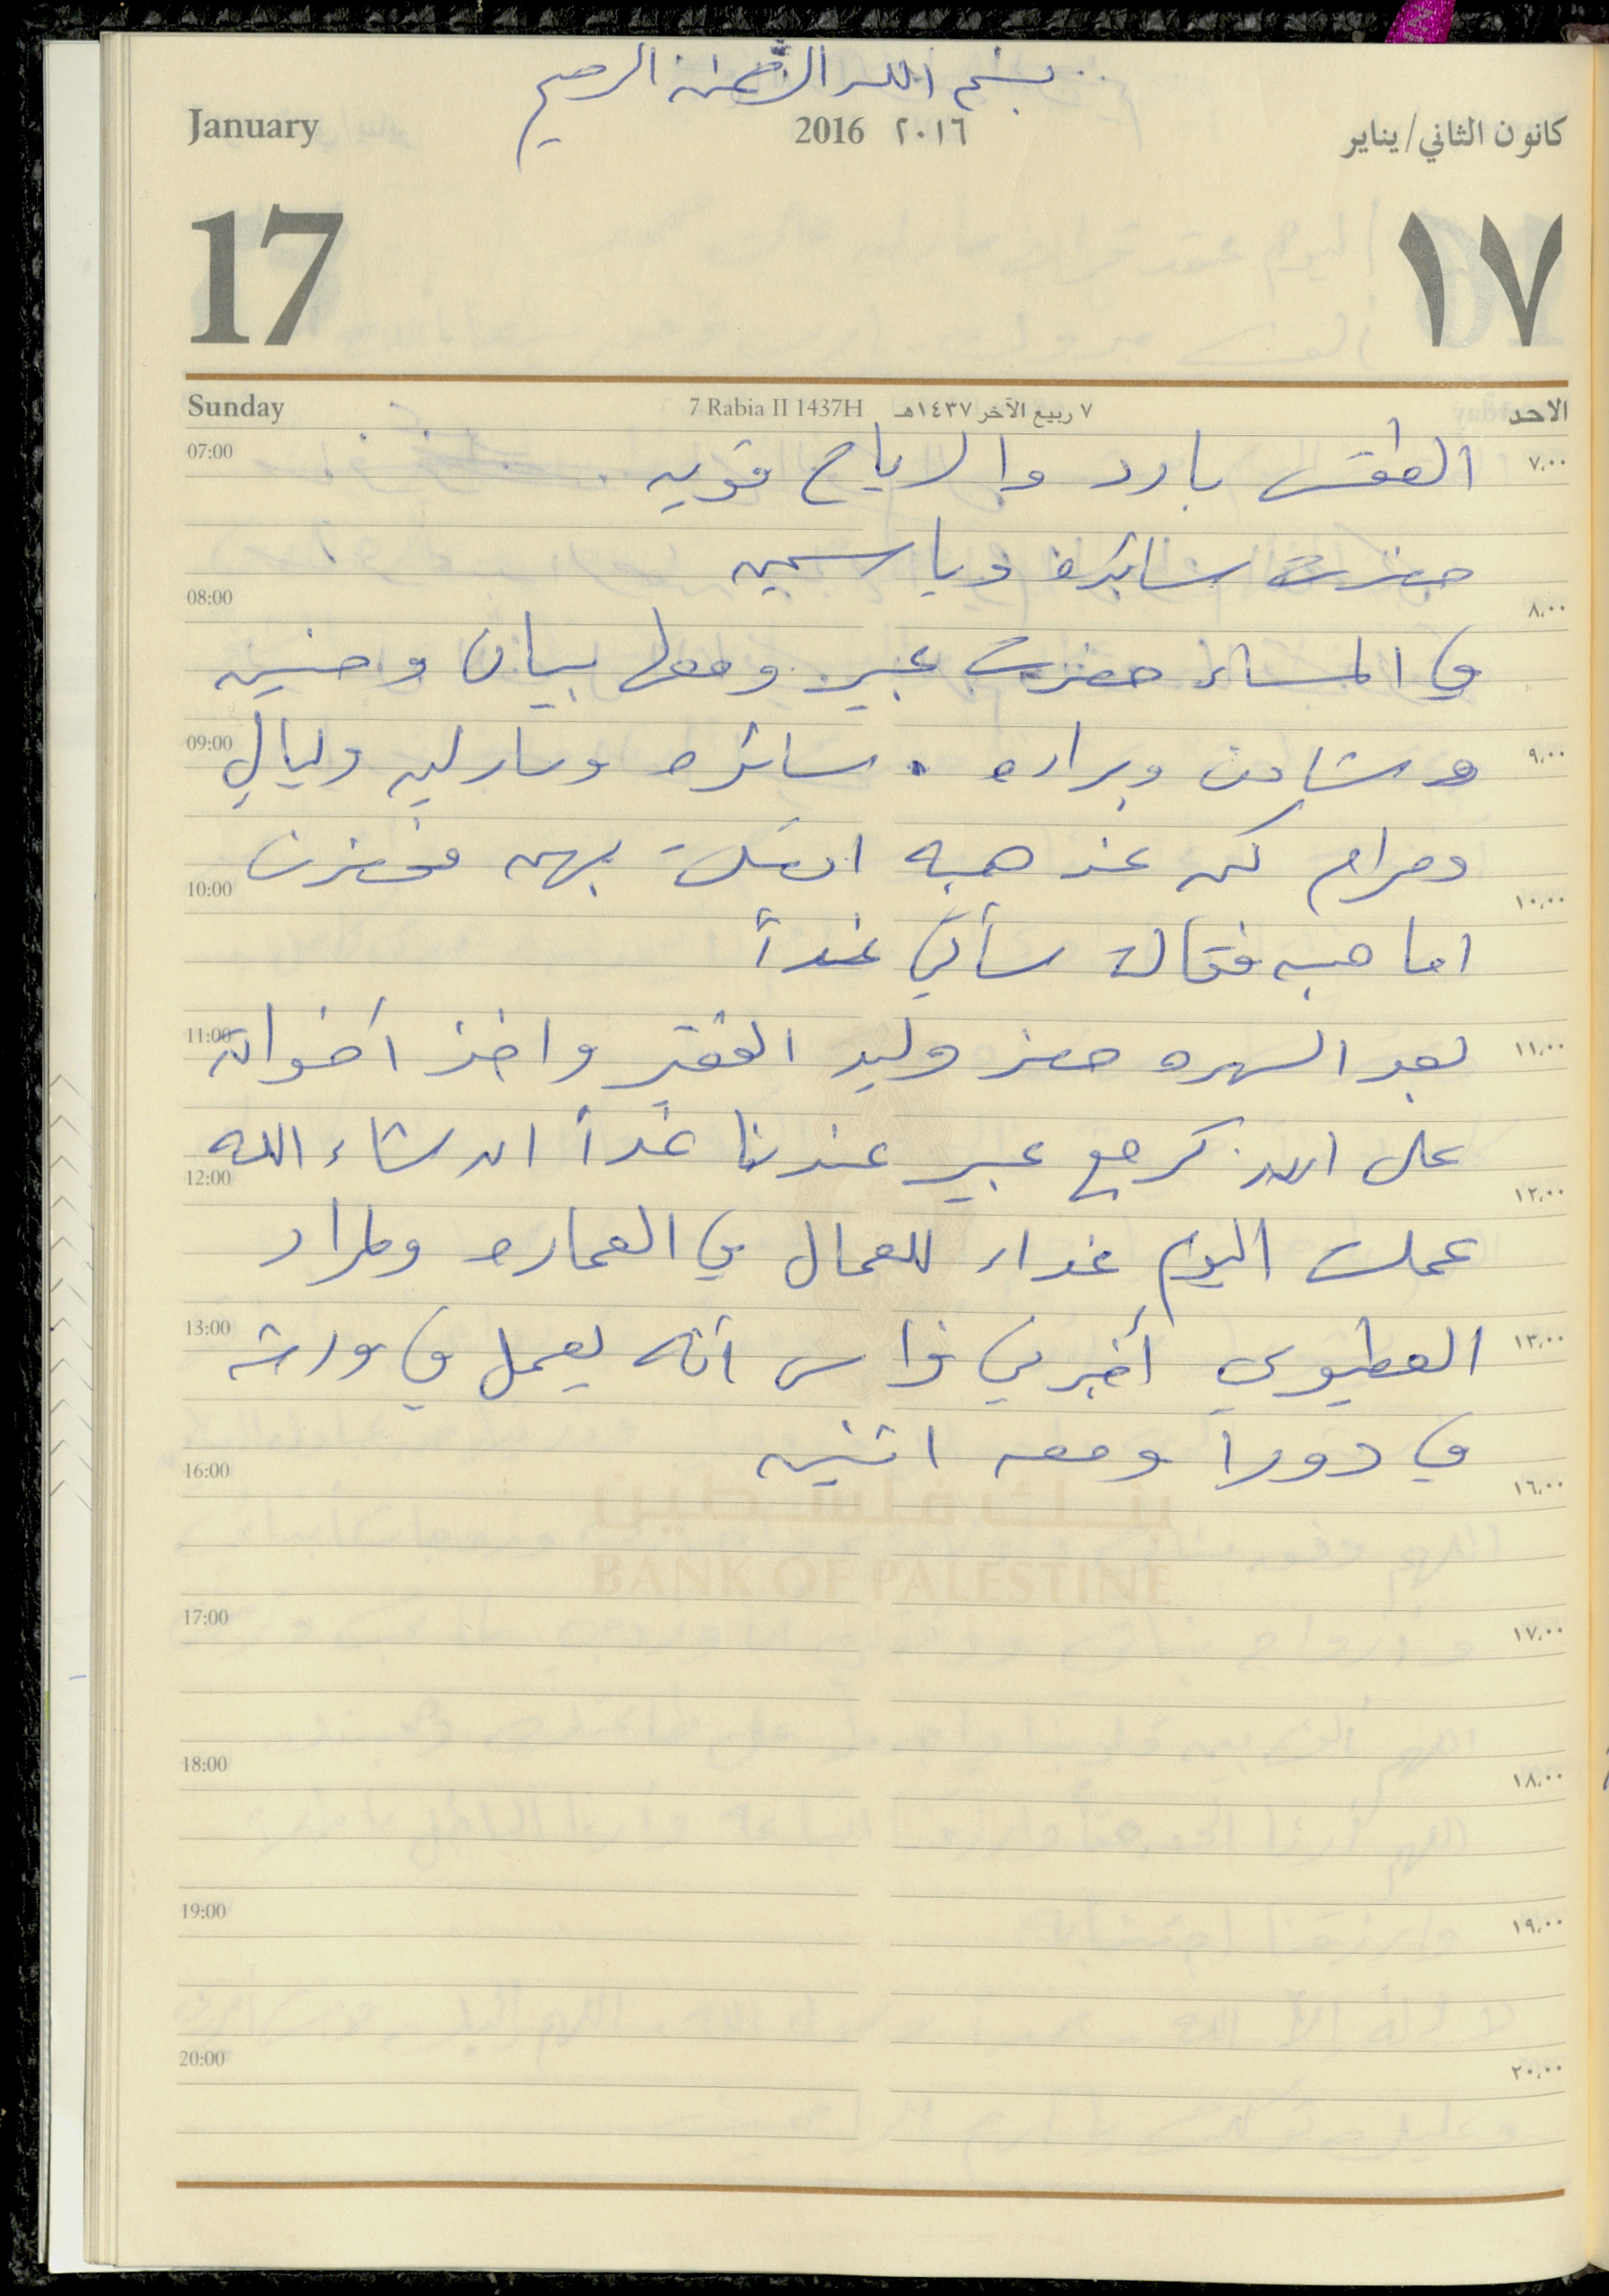 بسم الله الرحمن الرحيم
January 2016 ٢٠١٦ كانون الثاني/يناير
17 ١٧
Sunday 7 Rabia II 1437H ٧ ربيع الآخر ١٤٣٧هـ الاحد
07:00 الطقس بارد والرياح قويه ٧,٠٠
حضرت سائده وياسمين
08:00 ٨,٠٠
في المساء حضرت عبير ومعها بيان وحنين
09:00 وشادن وبراده . سائده ومارليه وليالي ٩,٠٠
ومرام كن عند هبه اتصلت بهن فحضرن
10:00 ١٠,٠٠
اما هبه فقالت ستأتي غداً
11:00 بعد السهره حضر وليد الفقير واخذ أخواته ١١,٠٠
على ان ترجع عبير عندنا غداً ان شاء الله
12:00 ١٢,٠٠
عملت اليوم غداء للعمال في العماره ولمراد
13:00 العطيوي أخبرني فراس أنه يعمل في ورشه ١٣,٠٠
في دورا ومعه اثنين
16:00 ١٦,٠٠
بنك فلسطين
BANK OF PALESTINE
17:00 ١٧,٠٠
18:00 ١٨,٠٠
19:00 ١٩,٠٠
20:00 ٢٠,٠٠